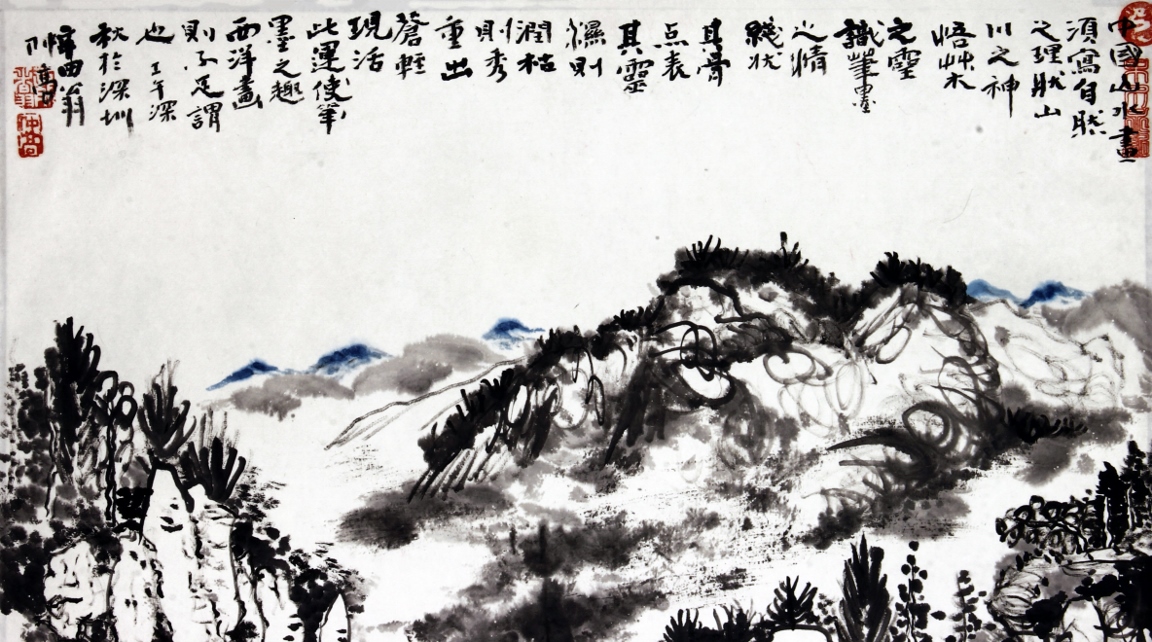 中國山水畫
須寫自然
之理狀山
川之神
悟艸木
之靈
識筆墨
之情
綫狀
其骨
点表
其靈
濕則
潤枯
則秀
重出
蒼輕
現活
此運使筆
墨之趣
西洋畫
則不足謂
也 壬午深
秋於深圳
田翁